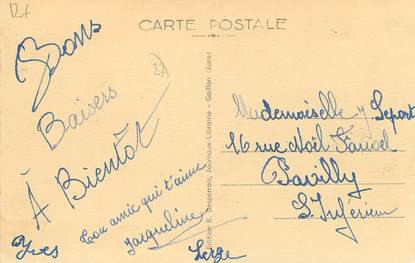 12f
CARTE POSTALE
Bons
Baisers
À Bientôt
Ton amie qui t'aime
Jacqueline
Yves
Serge
Journaux-Librairie - Gaillon (Eure)
Mademoiselle J Lepont
16 rue Noël
Pavilly
S. Inférieure